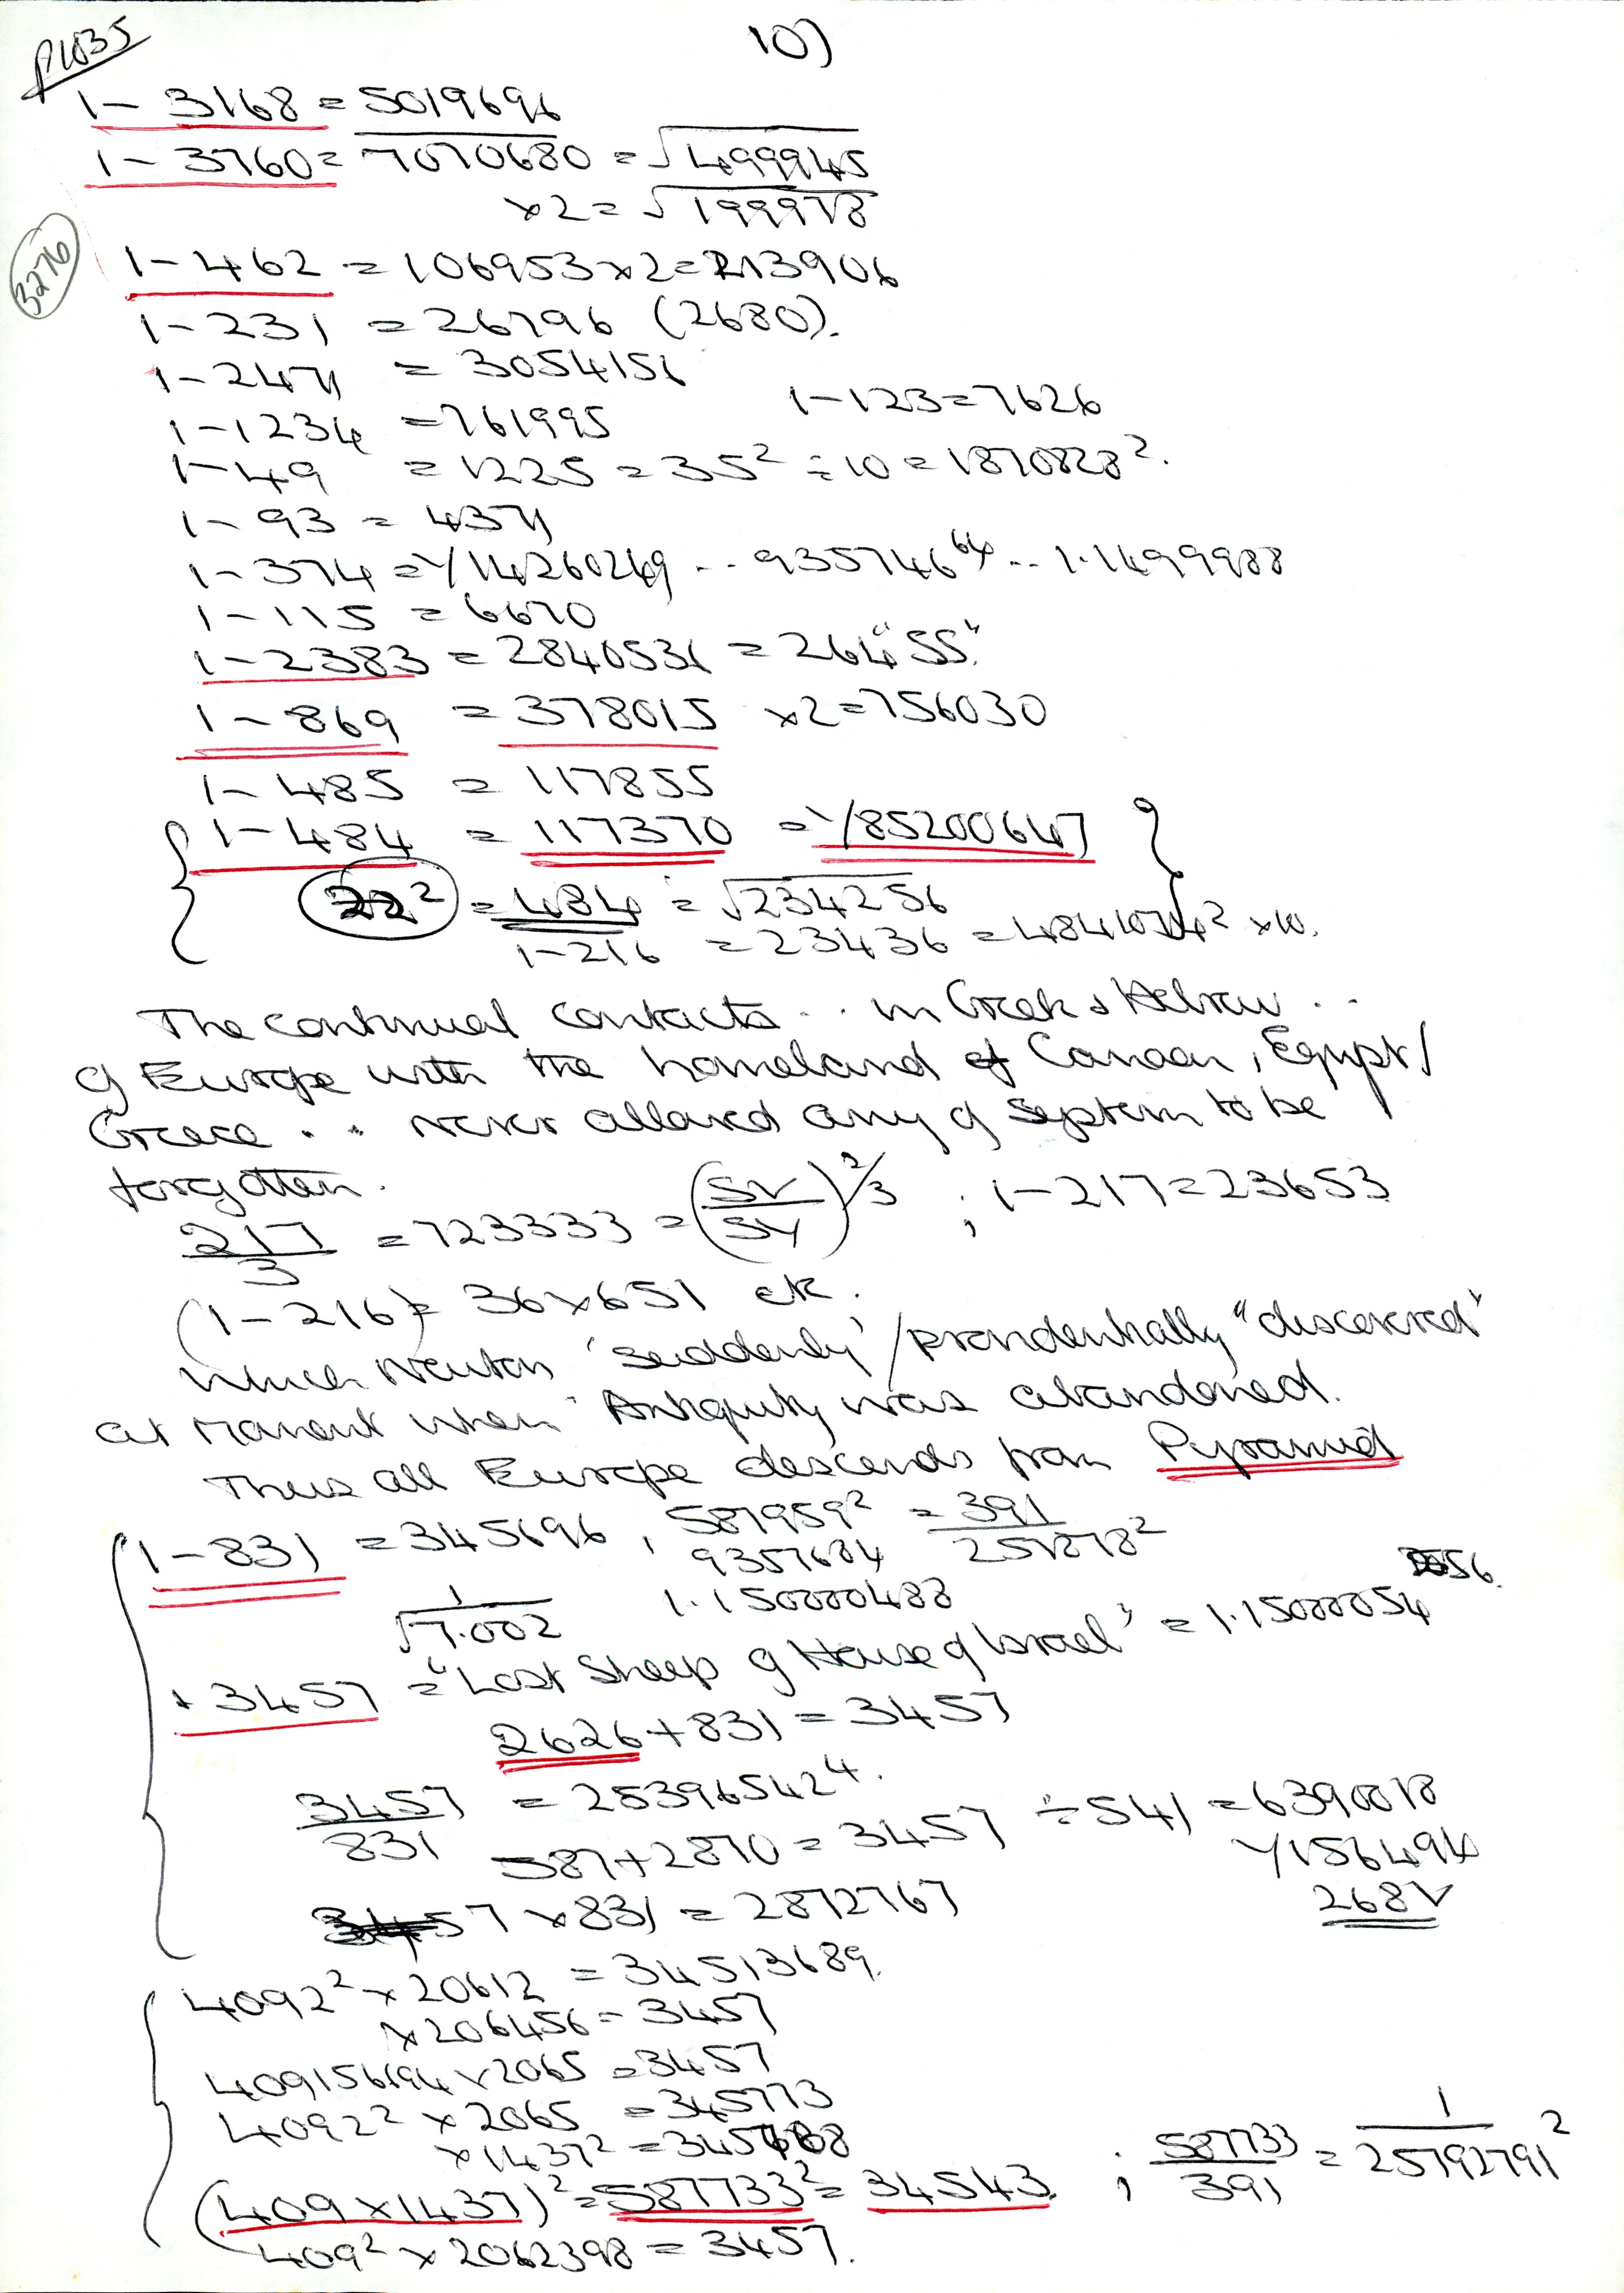 P1035
10)
1 - 3168 = 5019696
1 - 3760 = 7070680 = √499945
×2 = √199978
3276
1 - 462 = 106953 × 2 = 213906
1 - 231 = 26796 (2680).
1 - 2471 = 3054156
1 - 1234 = 761995   1 - 123 = 7626
1 - 49 = 1225 = 35² ÷ 10 = 1870828².
1 - 93 = 4371
1 - 374 = 1/14260269 .. 935746⁶⁴ .. 1.1499988
1 - 115 = 6670
1 - 2383 = 2840536 = 264 "55".
1 - 869 = 378015 ×2 = 756030
1 - 485 = 117855
1 - 484 = 117370 = 1/85200647
22² = 484 = √234256
1 - 216 = 23436 = 4841074² × 10.
The continual contacts .. in Greek & Hebrew ..
of Europe with the homeland of Canaan, Egypt/
Greece .. never allowed any of system to be
forgotten.
217/3 = 723333 = (SV/SY)^2/3 ; 1 - 217 = 23653
(1 - 216) = 36 × 651 etc.
which Newton 'suddenly'/providentially "discovered"
at moment when Antiquity was abandoned.
Thus all Europe descends from Pyramid
1 - 831 = 345696, 587959² = 391/251878²
9357684
1/√7.002   1.150000488
56.
+ 3457 = "Lost Sheep of House of Israel" = 1.15000054
2626 + 831 = 3457
3457/831 = 253965424.
587 + 2870 = 3457 ÷ 541 = 6390018
1/156494
57 × 831 = 2872767   268V
4092² × 20612 = 34513689.
× 206456 = 3457
409156694 × 2065 = 3457
4092² × 2065 = 345773
× 1437² =
(409 × 1437)² = 587733² = 34543 ; 587733/391 = 1/25792791²
409² × 2062398 = 3457.